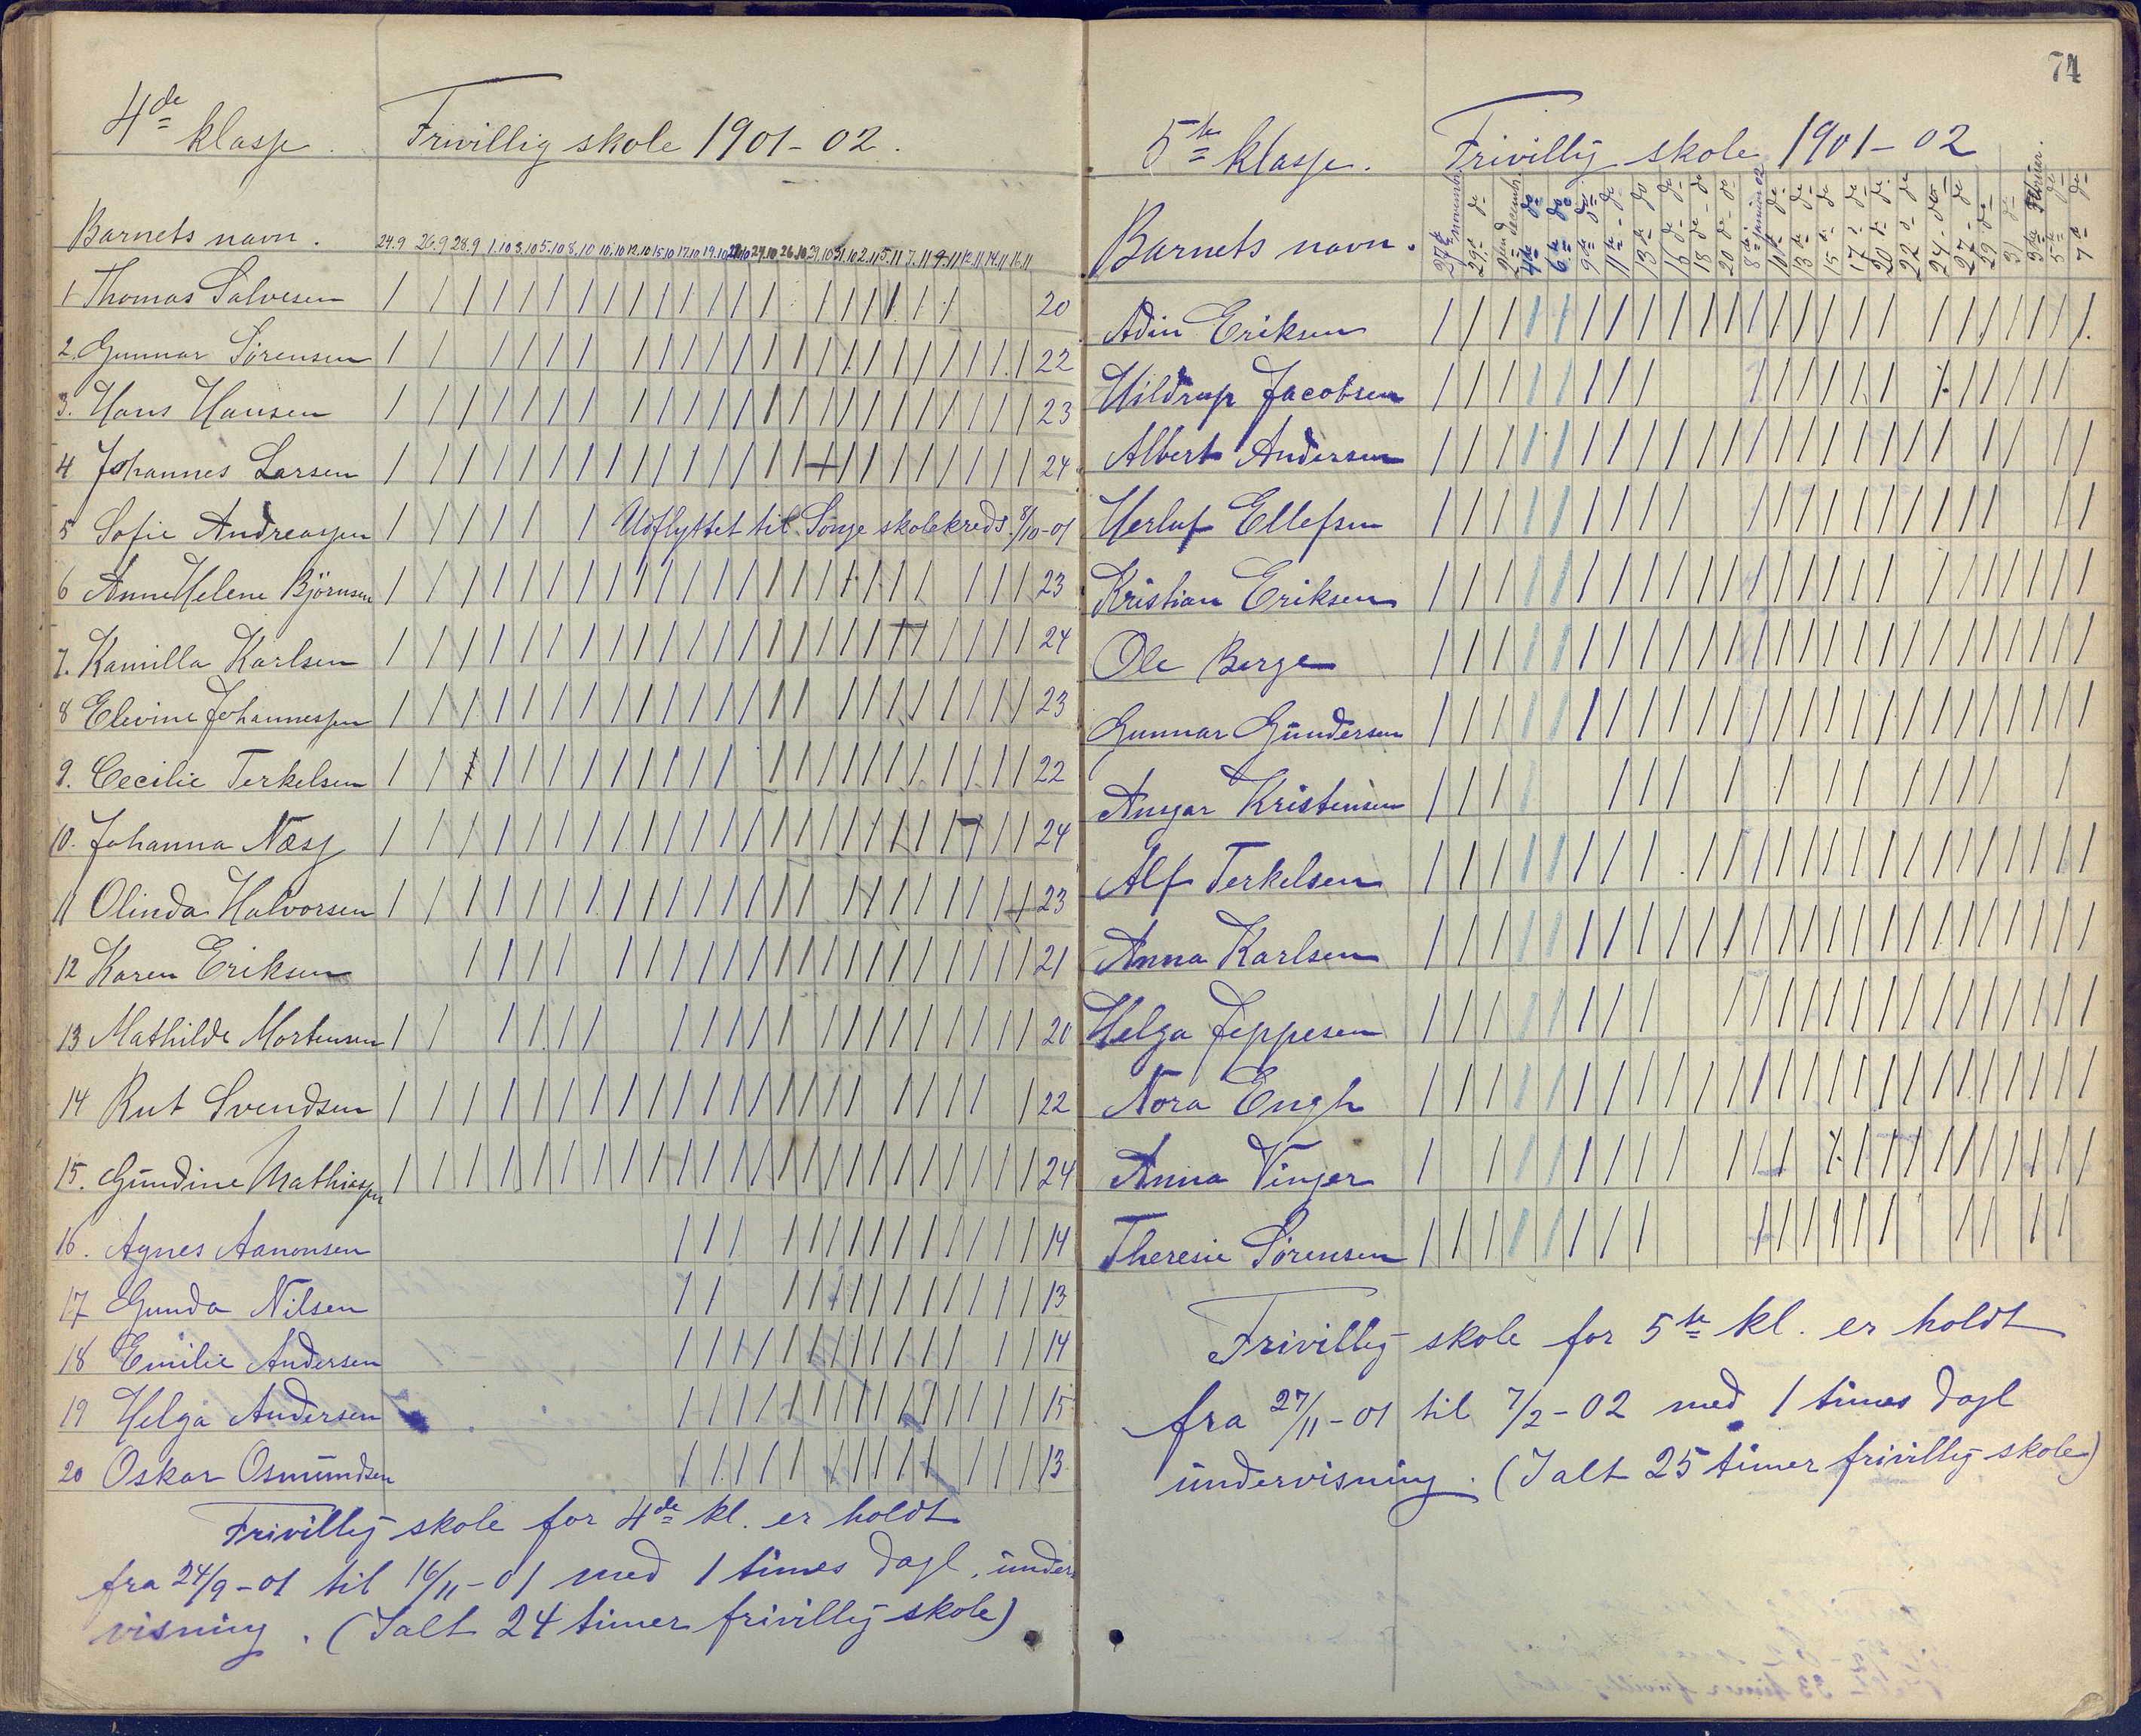 74
4de klasse. Frivillig skole 1901-02.
Barnets navn. 24.9 26.9 28.9 1.10 3.10 5.10 8.10 10.10 12.10 15.10 17.10 19.10 22.10 24.10 26.10 29.10 31.10 2.11 5.11 7.11 9.11 12.11 14.11 16.11
1 Thomas Salvesen 20
2. Gunnar Sørensen 22
3. Hans Hansen 23
4 Johannes Larsen 24
5 Sofie Andreassen Udflyttet til Songe skolekreds 8/10-01
6 Anne Helene Björnsen 23
7. Kamilla Karlsen 24
8 Elevine Johannessen 23
9. Cecilie Terkelsen 22
10. Johanna Næss 24
11 Olinda Halvorsen 23
12 Karen Eriksen 21
13 Mathilde Mortensen 20
14 Rut Svendsen 22
15. Gundine Mathiassen 24
16. Agnes Aanonsen 14
17 Gunda Nilsen 13
18 Emilie Andersen 14
19 Helga Andersen 15
20 Oskar Osmundsen 13
Frivillig skole for 4de kl. er holdt
fra 24/9-01 til 16/11-01 med 1 times dagl. under
visning. (Ialt 24 timer frivillig skole)
5te klasse. Frivillig skole 1901-02
Barnets navn. 27de november 29de do 2den decembr. 4de do 6te do 9de do 11te do 13de do 16de do 18de do 20de do 8de januar 02 10de do 13de do 15de do 17de do 20de do 22de do 24de do 27de do 29de do 31 do 3die Februar. 5te do 7de do
Adin Eriksen
Hildrup Jacobsen
Albert Andersen
Herluf Ellefsen
Kristian Eriksen
Ole Berge
Gunnar Gundersen
Ansgar Kristensen
Alf Terkelsen
Anna Karlsen
Helga Jeppesen
Nora Engh
Anna Vinger
Theresie Sørensen
Frivillig skole for 5te kl. er holdt
fra 27/11-01 til 7/2-02 med 1 times dagl
undervisning. (Ialt 25 timer frivillig skole)